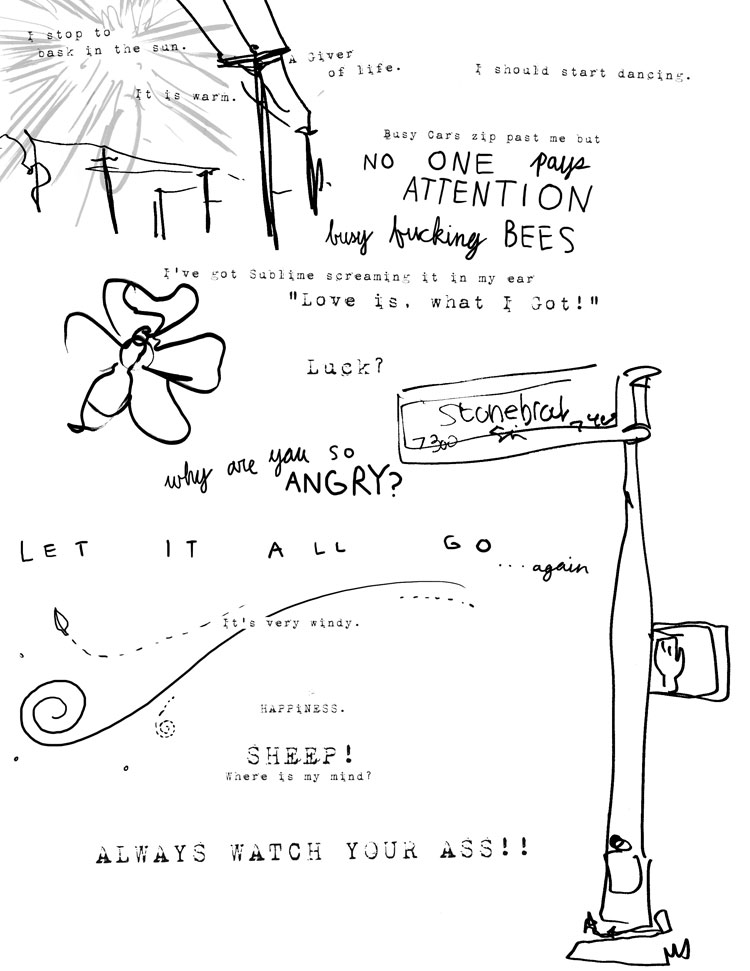 I stop to
bask in the sun.
A Giver
of life.
I should start dancing.
It is warm.
Busy Cars zip past me but
NO ONE pays
ATTENTION
busy fucking BEES
I've got Sublime screaming it in my ear
"Love is, what I Got!"
Luck?
Stonebrook
7300
why are you so
ANGRY?
LET IT ALL GO
...again
It's very windy.
HAPPINESS.
SHEEP!
Where is my mind?
ALWAYS WATCH YOUR ASS!!